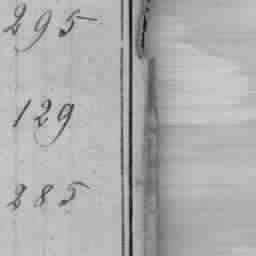 295
129
285